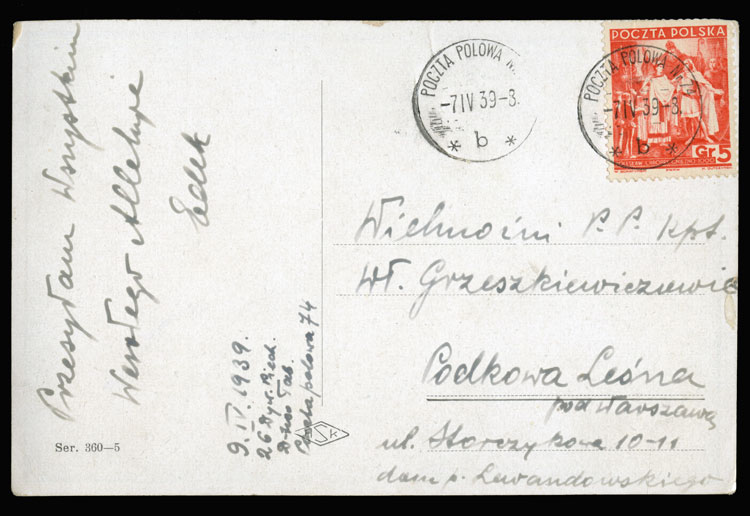 Przesyłam Wszystkim
Wesołego Alleluja
Edek
9.IV.1939.
26 Dyw. Piech.
Poczta polowa 74
Ser. 360—5
POCZTA POLOWA Nr.
-7 IV 39-8.
* b *
POCZTA POLSKA
POCZTA POLOWA Nr.
-7 IV 39-8.
* b *
Gr. 5
Wielmożni P.P. kpt.
Wł. Grzeszkiewiczowie
Podkowa Leśna
pod Warszawą
ul. Storczykowa 10-11
dom p. Lewandowskiego